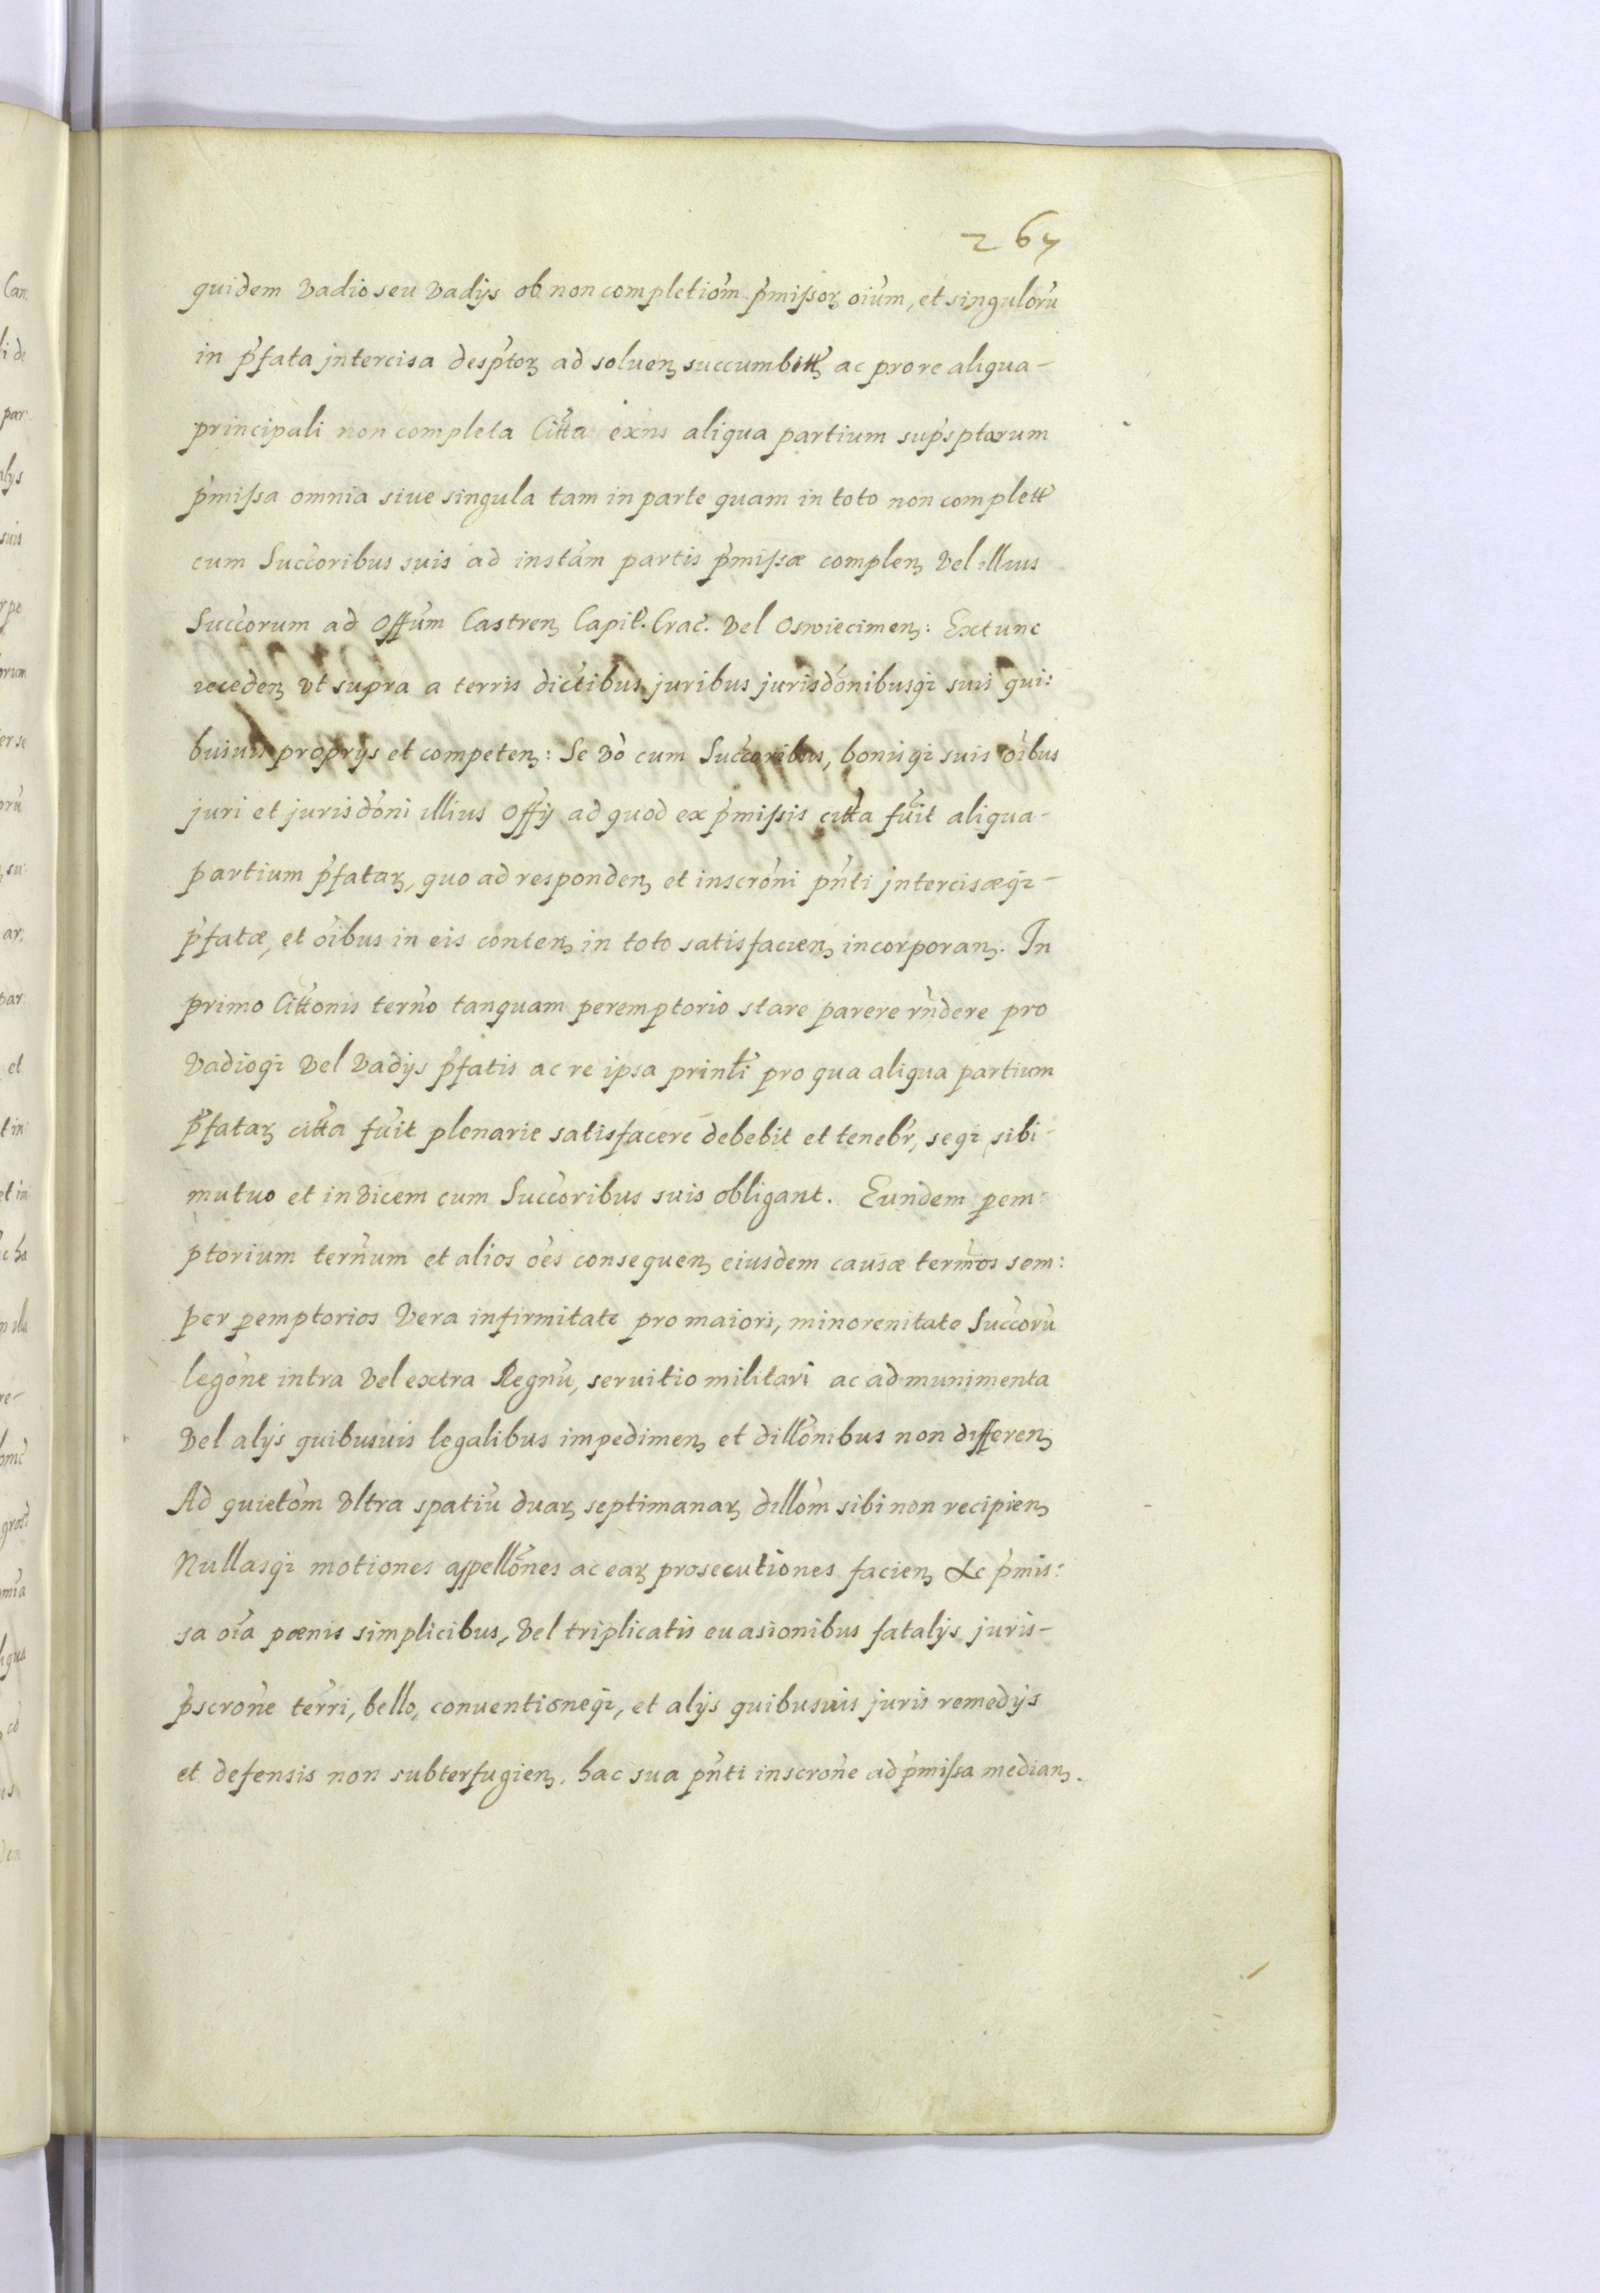 267
quidem vadio seu vadijs ob non completiom̄ p̄missoꝝ oium̄, et singulorū
in p̄fata jntercisa desp̄toꝝ ad soluenꝫ succumbittꝫ ac pro re aliqua-
principali non completa Citta exn̄s aliqua partium sup̄sptorum
p̄missa omnia siue singula tam in parte quam in toto non complett
cum Succoribus suis ad instam̄ partis p̄missæ complenꝫ vel illius
Succorum ad Offum̄ Castrenꝫ Capit. Crac. vel Oswiecimenꝫ: Extunc
recedenꝫ vt supra a terris dictibus juribus jurisdōnibusqꝫ suis qui:
busuis proprijs et competenꝫ: Se vō cum Succoribus, bonisqꝫ suis oībus
juri et jurisdōni illius Offij ad quod ex p̄missis citta fuit aliqua-
partium p̄fataꝝ, quo ad respondenꝫ et inscrōni pn̄ti jntercisæqꝫ-
p̄fatæ, et oībus in eis contenꝫ in toto satisfacienꝫ incorporanꝫ. In
primo Cittonis tern̄o tanquam peremptorio stare parere rn̄dere pro
vadioqꝫ vel vadijs p̄fatis ac re ipsa prinli pro qua aliqua partium
p̄fataꝝ citta fuit plenarie satisfacere debebit et tenebr, seqꝫ sibi-
mutuo et invicem cum Succoribus suis obligant. Eundem pem:
ptorium tern̄um et alios oēs consequenꝫ eiusdem causæ term̄os sem:
per pemptorios vera infirmitate pro maiori, minorenitate Succorū
legōne intra vel extra Regnū, seruitio militari ac ad munimenta
vel alijs quibusuis legalibus impedimenꝫ et dillōnibus non differenꝫ
Ad quietōm vltra spatiū duaꝝ septimanaꝝ dillōm sibi non recipienꝫ
Nullasqꝫ motiones appellōnes ac eaꝝ prosecutiones facienꝫ &c p̄mis:
sa oīa pœnis simplicibus, vel triplicatis euasionibus fatalijs juris-
p̄scrōne terri, bello, conuentioneqꝫ, et alijs quibusuis juris remedijs
et defensis non subterfugienꝫ, hac sua pn̄ti inscrōne ad p̄missa medianꝫ.